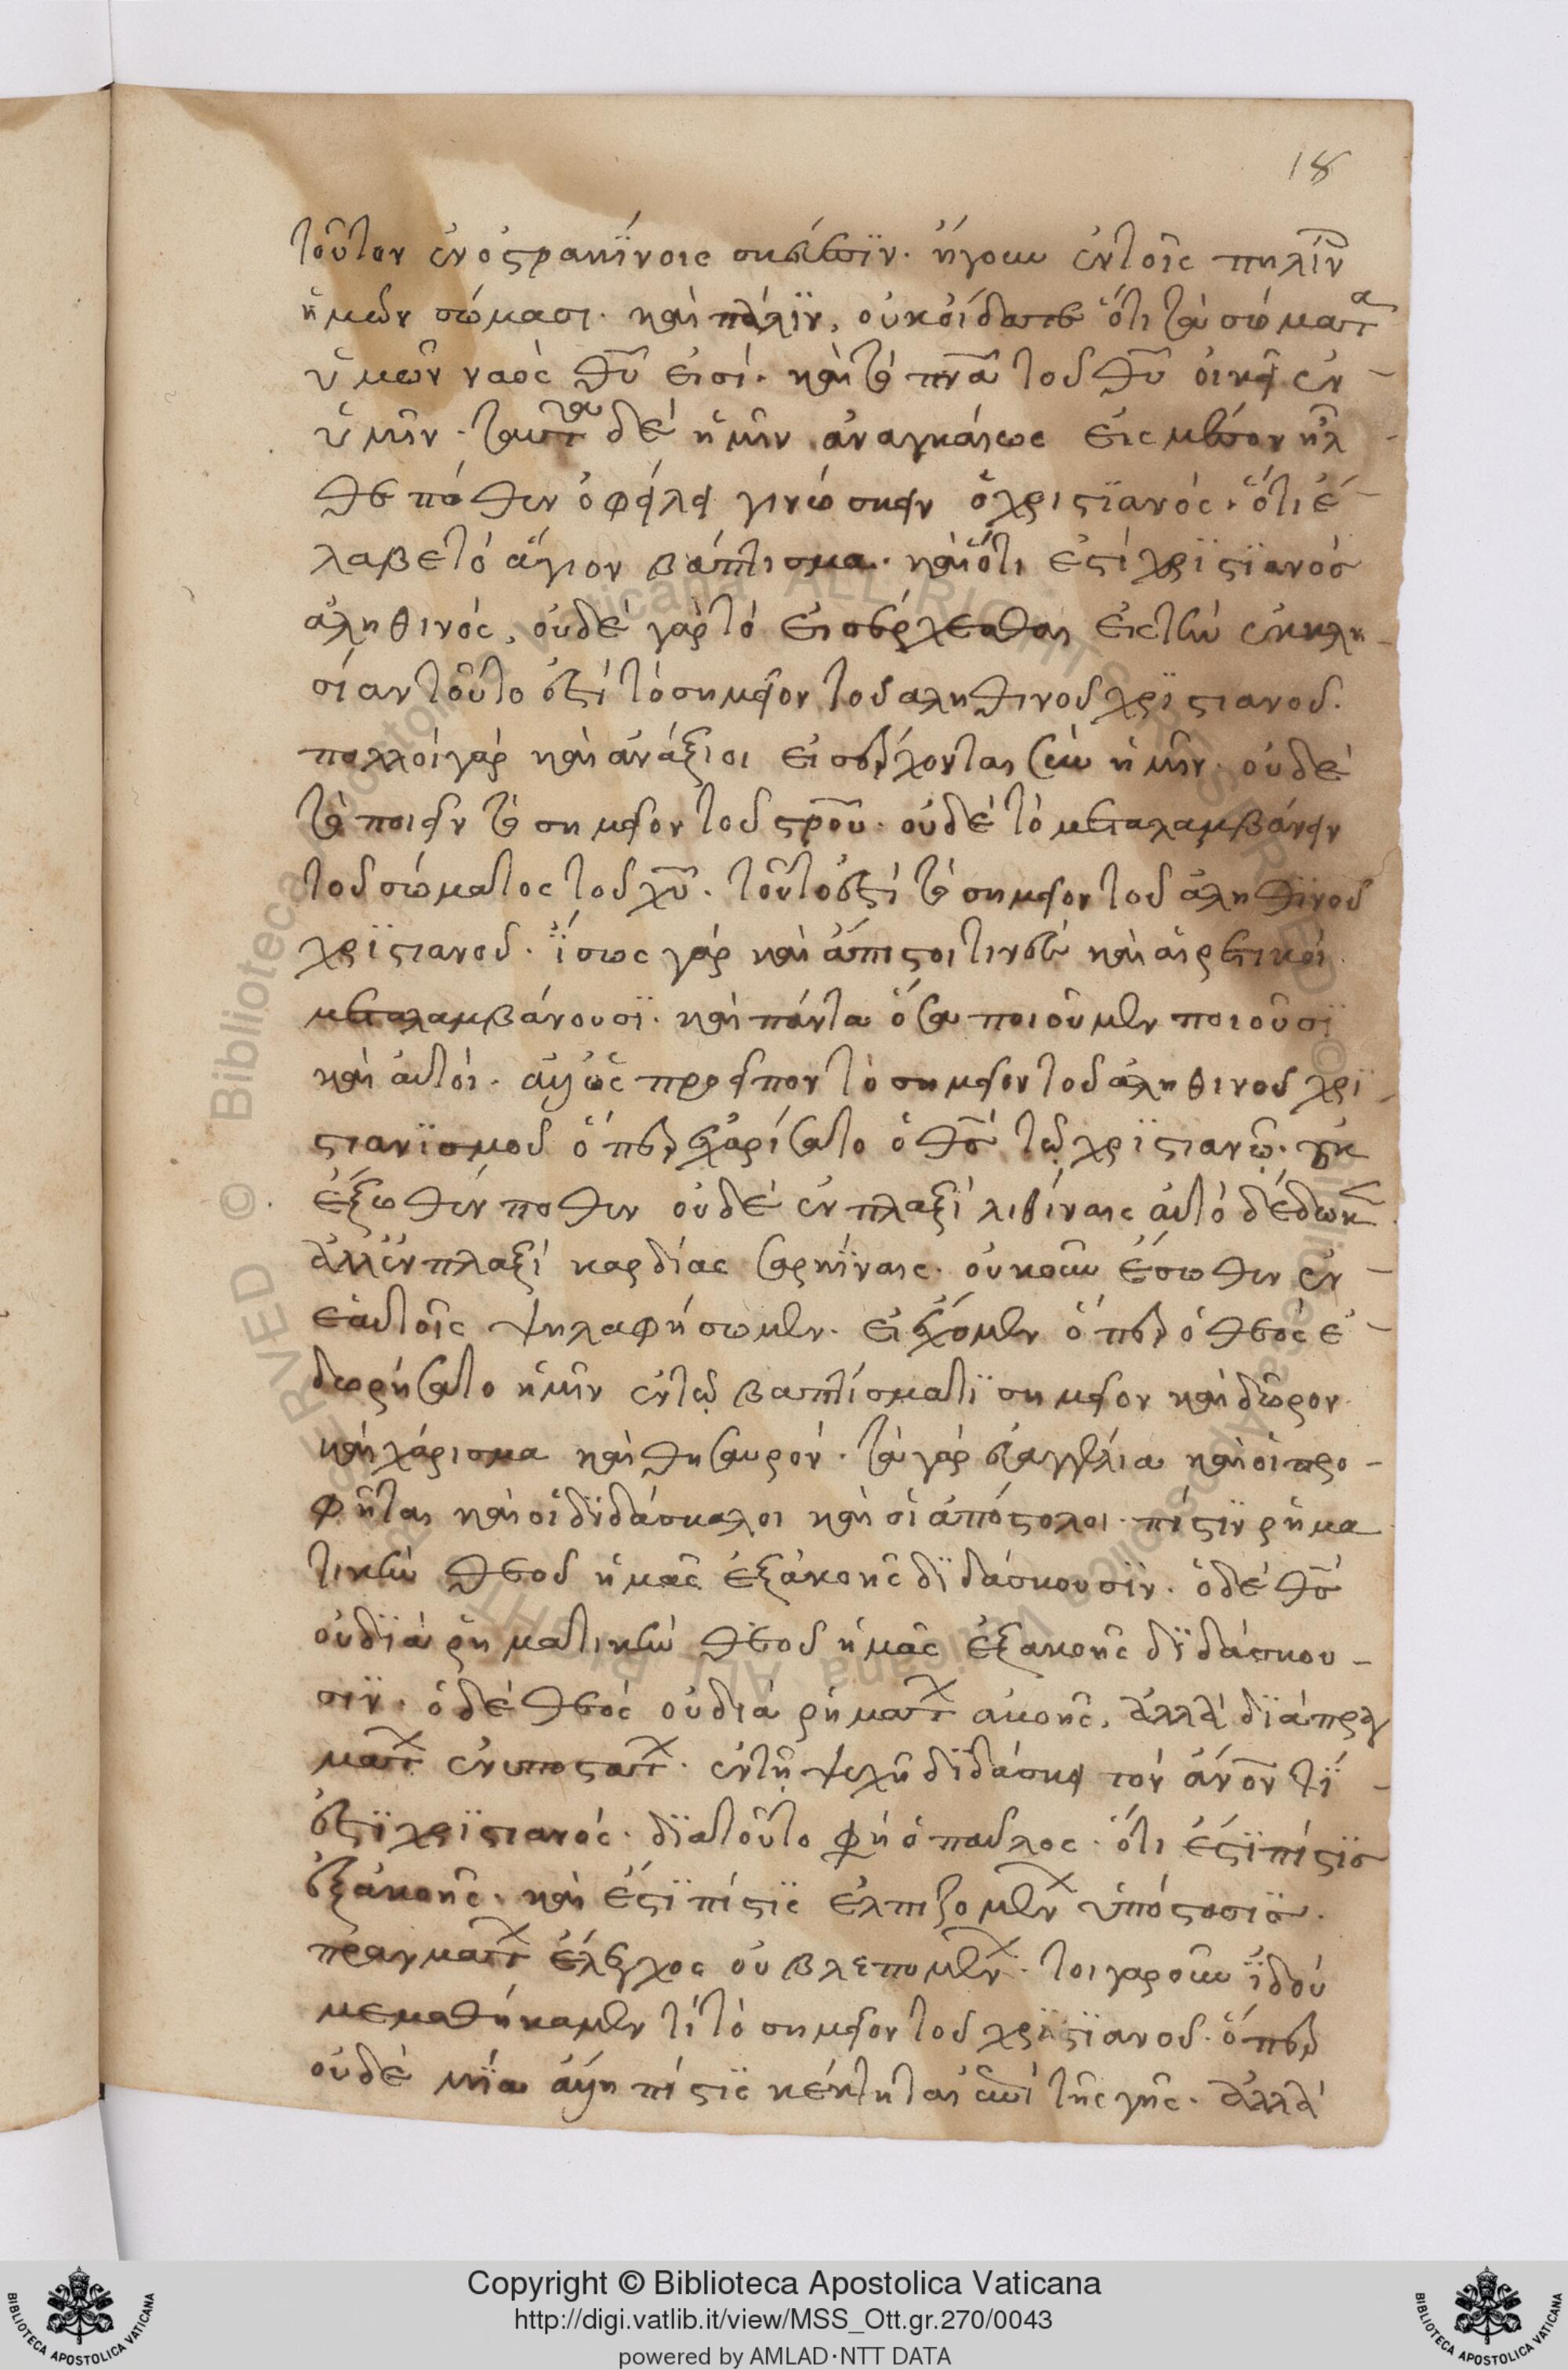 18
τοῦτον ἐν ὀστρακΐνοις σκεύεσϊν. ἤγουν ἐν τοῖς πηλίν
ἡμῶν σώμασι. καὶ πάλϊν, οὐκ οἴδατε ὅτι τὰ σώματα
ὑμῶν ναὸς θῦ εἰσί. καὶ τὸ πνᾶ τοῦ θῦ οἰκεῖ ἐν
ὑμῖν. ταῦτα δὲ ἡμῖν ἀναγκαίως εἰς μέσον ἦλ
θε πόθεν ὀφείλει γινώσκειν ὁ χριστϊανός. ὅτι ἔ
λαβε τὸ ἅγιον βάπτισμα. καὶ ὅτι ἐστὶ χρϊστϊανὸσ
ἀληθινός, οὐδὲ γὰρ τὸ εἰσέρχεσθαι εἰς τὴν ἐκκλη
σίαν τοῦτο ἐστὶ τὸ σημεῖον τοῦ αληθινοῦ χρϊστιανοῦ.
πολλοὶ γὰρ καὶ ἀνάξιοι εἰσέρχονται σὺν ἡμῖν. οὐδὲ
τὸ ποιεῖν τὸ σημεῖον τοῦ στροῦ. οὐδὲ τὸ μεταλαμβάνειν
τοῦ σώματος τοῦ χῦ. τοῦτο ἐστὶ τὸ σημεῖον τοῦ ἀληθϊνοῦ
χρϊστιανοῦ. ἴσως γὰρ καὶ ἄπιστοι τινὲς καὶ αἱρετικοὶ
μεταλαμβάνουσϊ. καὶ πάντα ὅσα ποιοῦμεν ποιοῦσϊ
καὶ αὐτοί. ἀλλ' ὡς προεῖπον τὸ σημεῖον τοῦ ἀληθινοῦ χρϊ
στιανϊσμοῦ ὅπερ ἐχαρίσατο ὁ θσ τῷ χρϊστιανῷ. οὐκ
ἔξωθέν ποθεν οὐδὲ ἐν πλαξὶ λιθίναις αὐτὸ δέδωκ
ἀλλ' ἐν πλαξὶ καρδίας σαρκΐναις. οὐκοῦν ἔσωθεν ἐν
ἑαυτοῖς ψηλαφήσωμεν. εἰ ἔχομεν ὅπερ ὁ θεὸς ἐ
δωρήσατο ἡμῖν ἐν τῷ βαπτίσματϊ σημεῖον καὶ δῶρον
καὶ χάρισμα καὶ θησαυρόν. τὰ γὰρ εὐαγγέλια καὶ οἱ προ
φῆται καὶ οἱ δϊδάσκαλοι καὶ οἱ ἀπόστολοι. πίστϊν ρήμα
τικὴν θεοῦ ἡμᾶς ἐξ ἀκοῆς δϊδάσκουσϊν. ὁ δὲ θσ
οὐ δϊὰ ρηματικὴν θεοῦ ἡμᾶς ἐξ ακοῆς δϊδάσκου
σϊν. ὁ δὲ θεὸς οὐ διὰ ρήματ ακοῆς, ἀλλὰ δϊὰ πραγ
ματ ἐνυποστατ. ἐν τῇ ψυχῇ δϊδάσκει τὸν ἄνον τΐ
ἐστϊ χρϊστιανός. δϊὰ τοῦτο φη ὁ παῦλος. ὅτι ἔστϊ πίστϊσ
ἐξ ἀκοῆς. καὶ ἔστϊ πίστϊς ἐλπιζομεν ὑπόστασϊσ.
πραγματ ἔλεγχος οὐ βλεπομεν. τοιγαροῦν ἰδοὺ
μεμαθήκαμεν τί τὸ σημεῖον τοῦ χρϊστϊανοῦ. ὅπερ
οὐδὲ μΐα ἄλλη πίστϊς κέκτηται ἐπὶ τῆς γῆς. ἀλλὰ
Copyright © Biblioteca Apostolica Vaticana
http://digi.vatlib.it/view/MSS_Ott.gr.270/0043
powered by AMLAD·NTT DATA